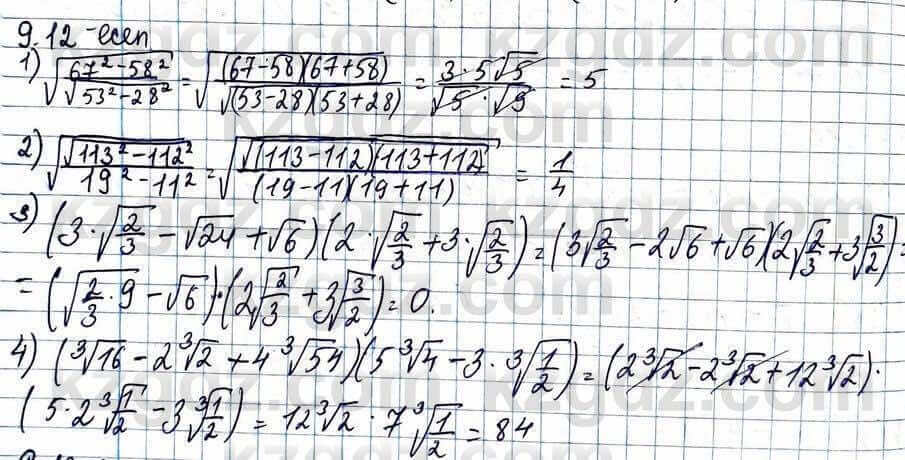 9.12-есеп
1) √((67²-58²)/√(53²-28²)) = √((67-58)(67+58)/√((53-28)(53+28))) = (3·5√5)/(√5·√9) = 5
2) √(√(113²-112²)/(19²-11²)) = √(√((113-112)(113+112))/((19-11)(19+11))) = 1/4
3) (3·√(2/3) - √24 + √6)(2·√(2/3) + 3·√(2/3)) = (3√(2/3) - 2√6 + √6)(2√(2/3) + 3√(3/2)) =
= (√(2/3·9) - √6)·(2√(2/3) + 3√(3/2)) = 0.
4) (∛16 - 2∛2 + 4∛54)(5∛4 - 3·∛(1/2)) = (2∛2 - 2∛2 + 12∛2)·
(5·2∛(1/2) - 3∛(1/2)) = 12∛2 · 7∛(1/2) = 84